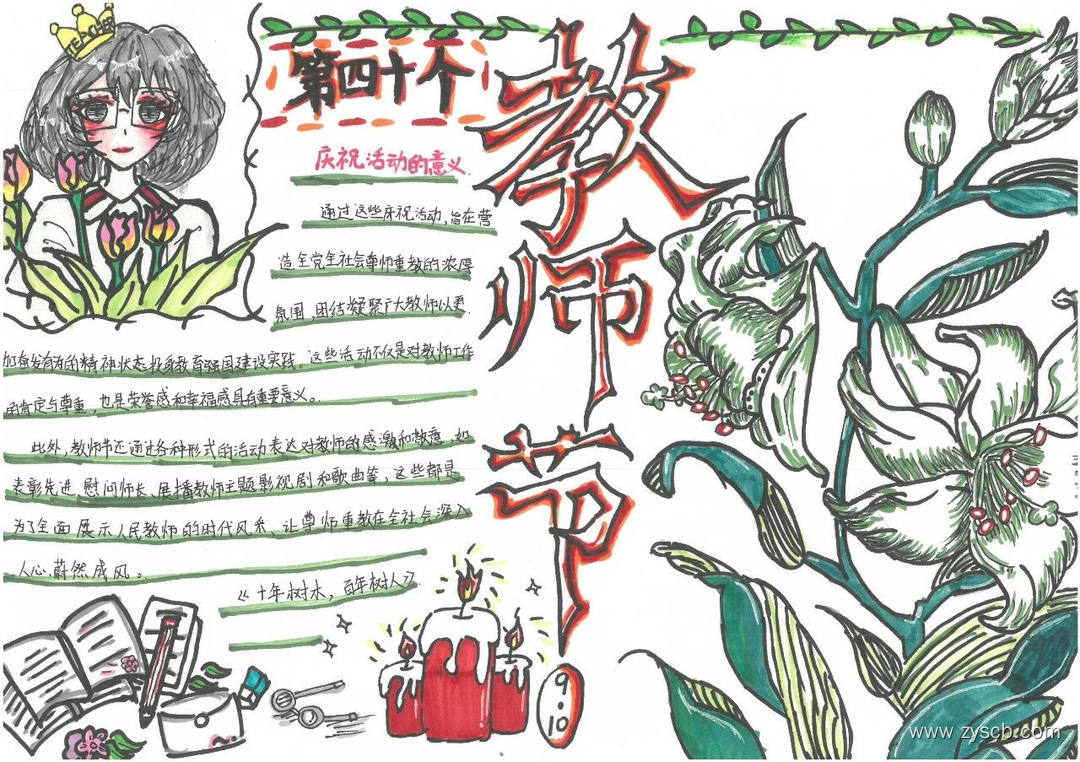 TEACHER
第四十个
教师节
庆祝活动的意义
通过这些庆祝活动,旨在营
造全党全社会尊师重教的浓厚
氛围,团结凝聚广大教师以更
加奋发有为的精神状态投身教育强国建设实践。这些活动不仅是对教师工作
的肯定与尊重,也是荣誉感和幸福感具有重要意义。
此外,教师节还通过各种形式的活动表达对教师的感激和敬意,如
表彰先进、慰问师长、展播教师主题影视剧和歌曲等,这些都是
为了全面展示人民教师的时代风采、让尊师重教在全社会深入
人心、蔚然成风。
《十年树木,百年树人》
9.10
www.zyscb.com